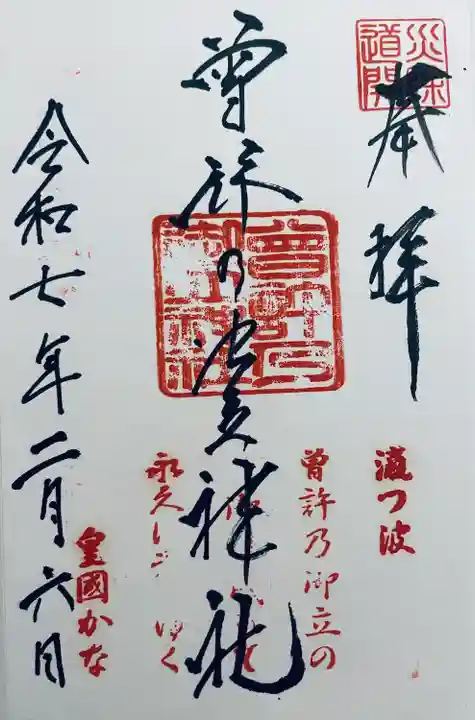 災除
道開
奉拝
瀛つ波
曾許乃御立の
曾許乃御立神社
曾許乃
御立神社
永久し ゆく
皇國かな
令和七年二月六日